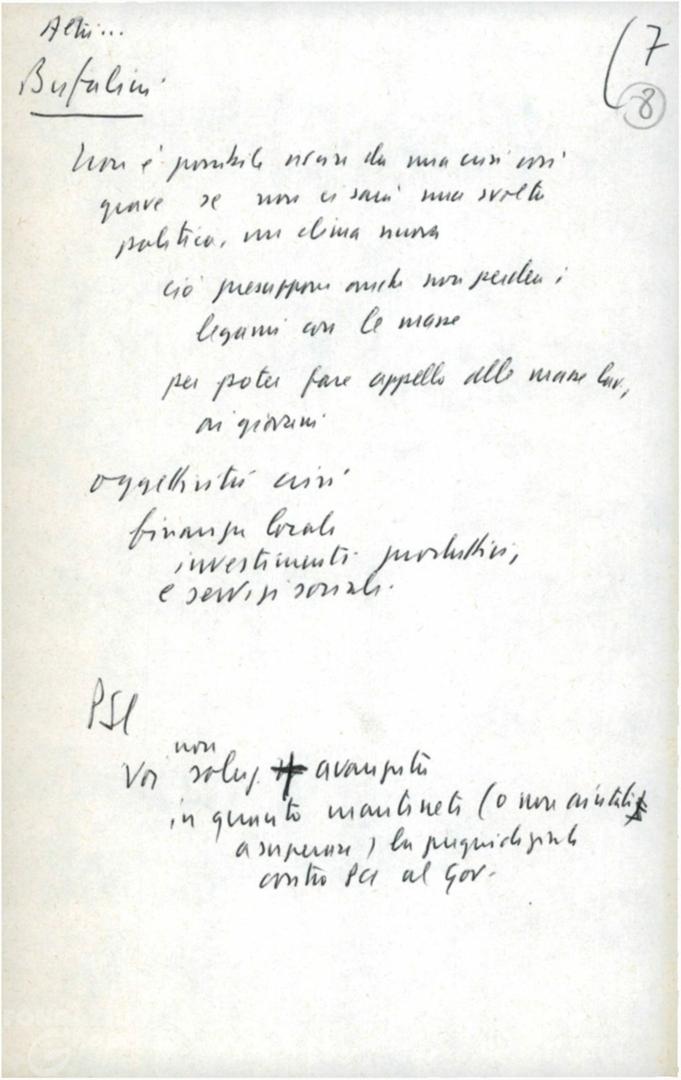 Altri...
(7
8
Bufalini
non è possibile uscire da una crisi così
grave se non ci sarà una svolta
politica, un clima nuovo
ciò presuppone anche non perdere i
legami con le masse
per poter fare appello alle masse lav,
ai giovani
oggettività crisi
finanza locale
investimenti produttivi,
e servizi sociali.
PSI
non
Voi soluz. avanzata
in quanto mantenete (o non aiutate
a superare) la pregiudiziale
contro PCI al Gov.